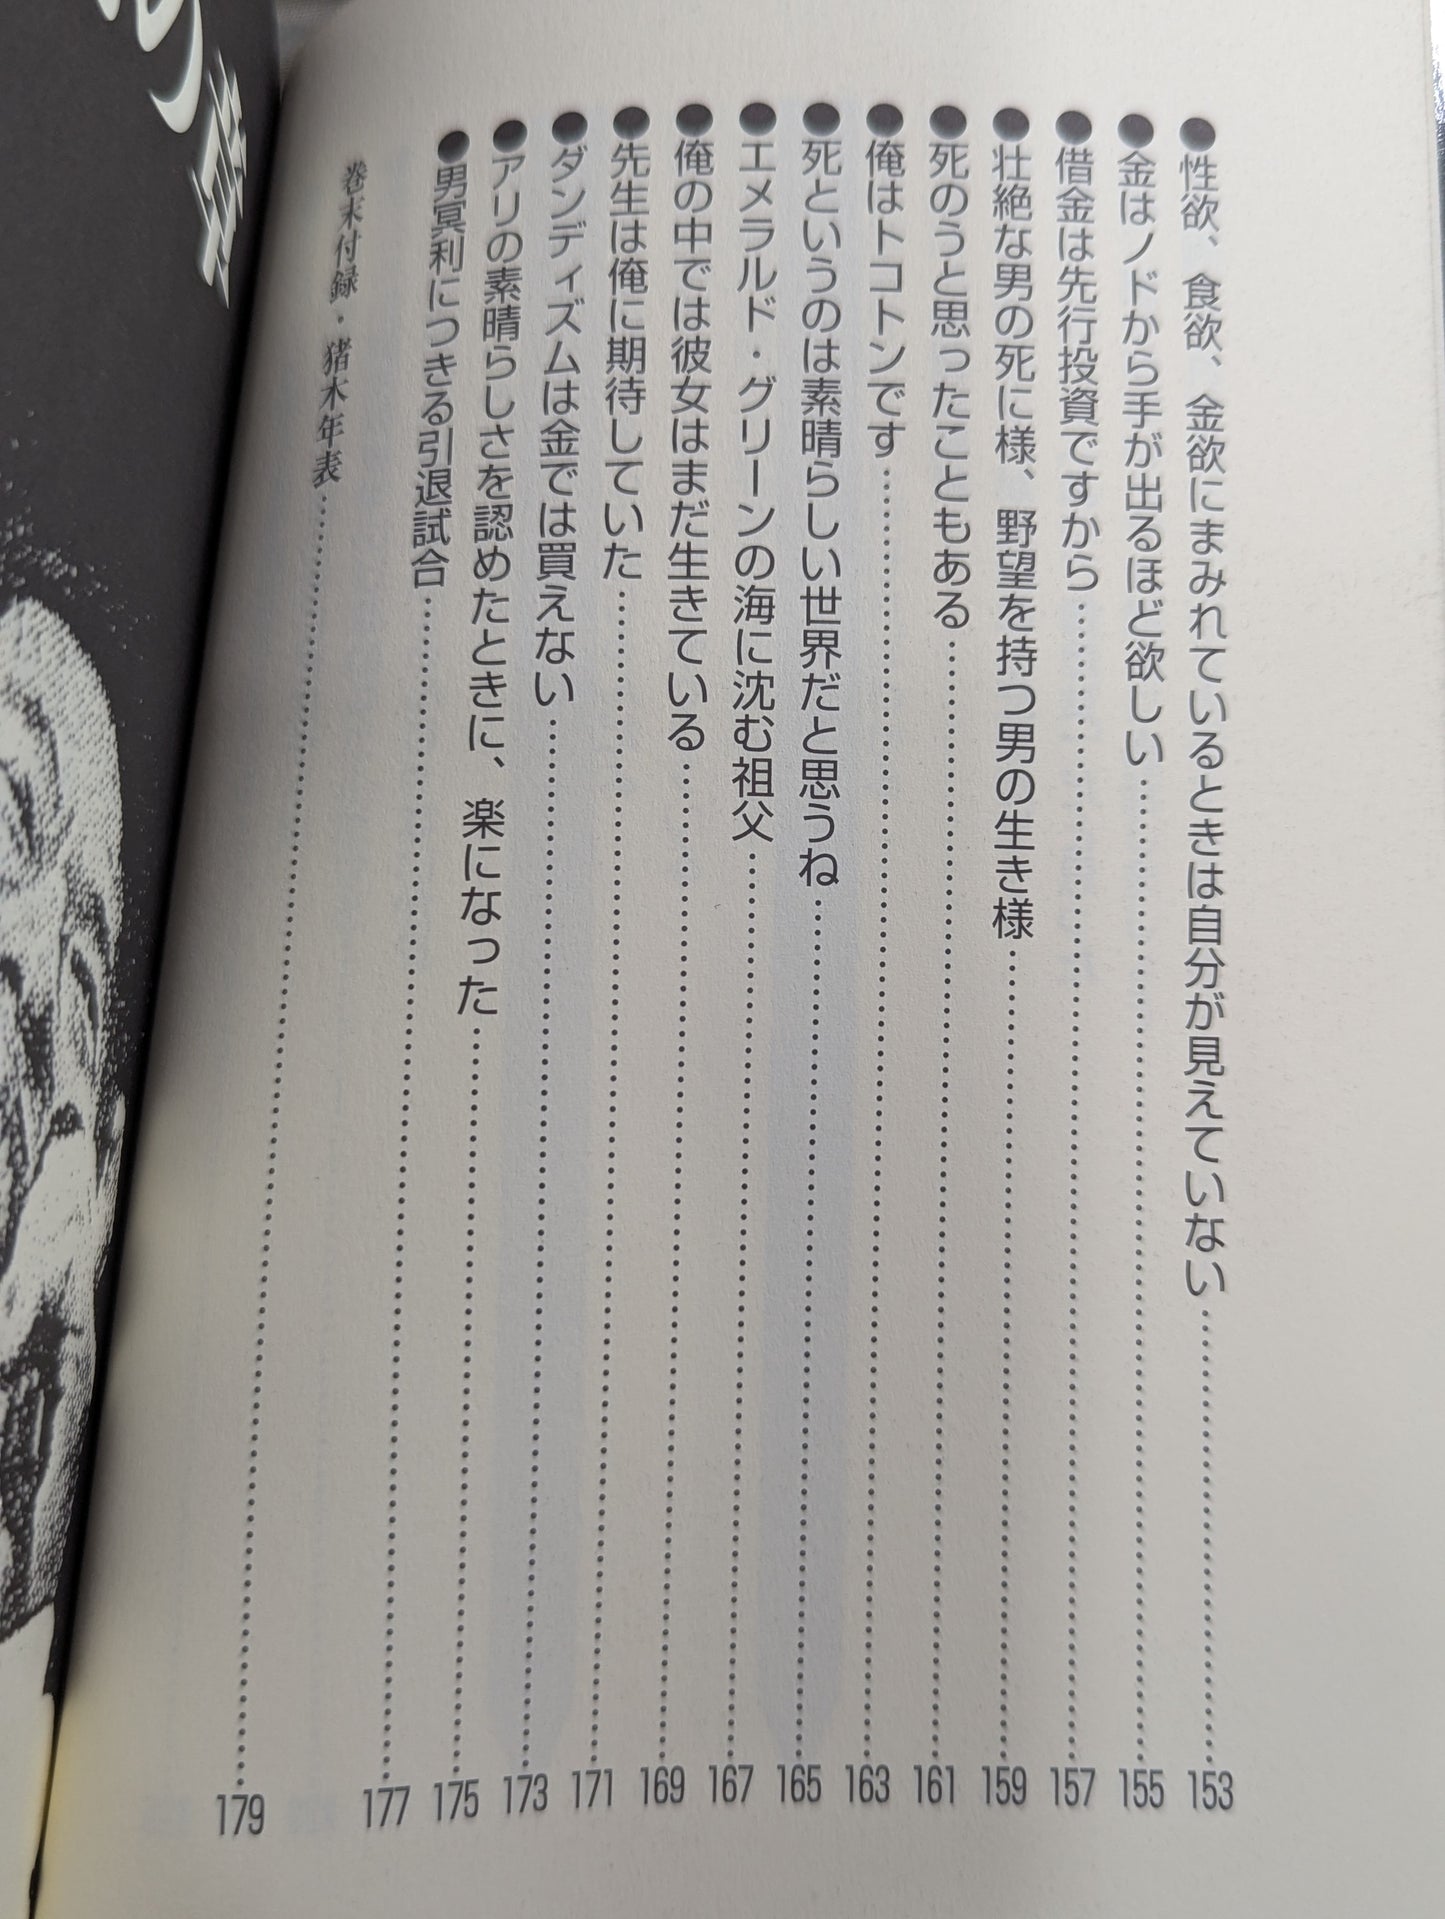 ●性欲、食欲、金欲にまみれているときは自分が見えていない……153
●金はノドから手が出るほど欲しい……155
●借金は先行投資ですから……157
●壮絶な男の死に様、野望を持つ男の生き様……159
●死のうと思ったこともある……161
●俺はトコトンです……163
●死というのは素晴らしい世界だと思うね……165
●エメラルド・グリーンの海に沈む祖父……167
●俺の中では彼女はまだ生きている……169
●先生は俺に期待していた……171
●ダンディズムは金では買えない……173
●アリの素晴らしさを認めたときに、楽になった……175
●男冥利につきる引退試合……177
巻末付録・猪木年表……179